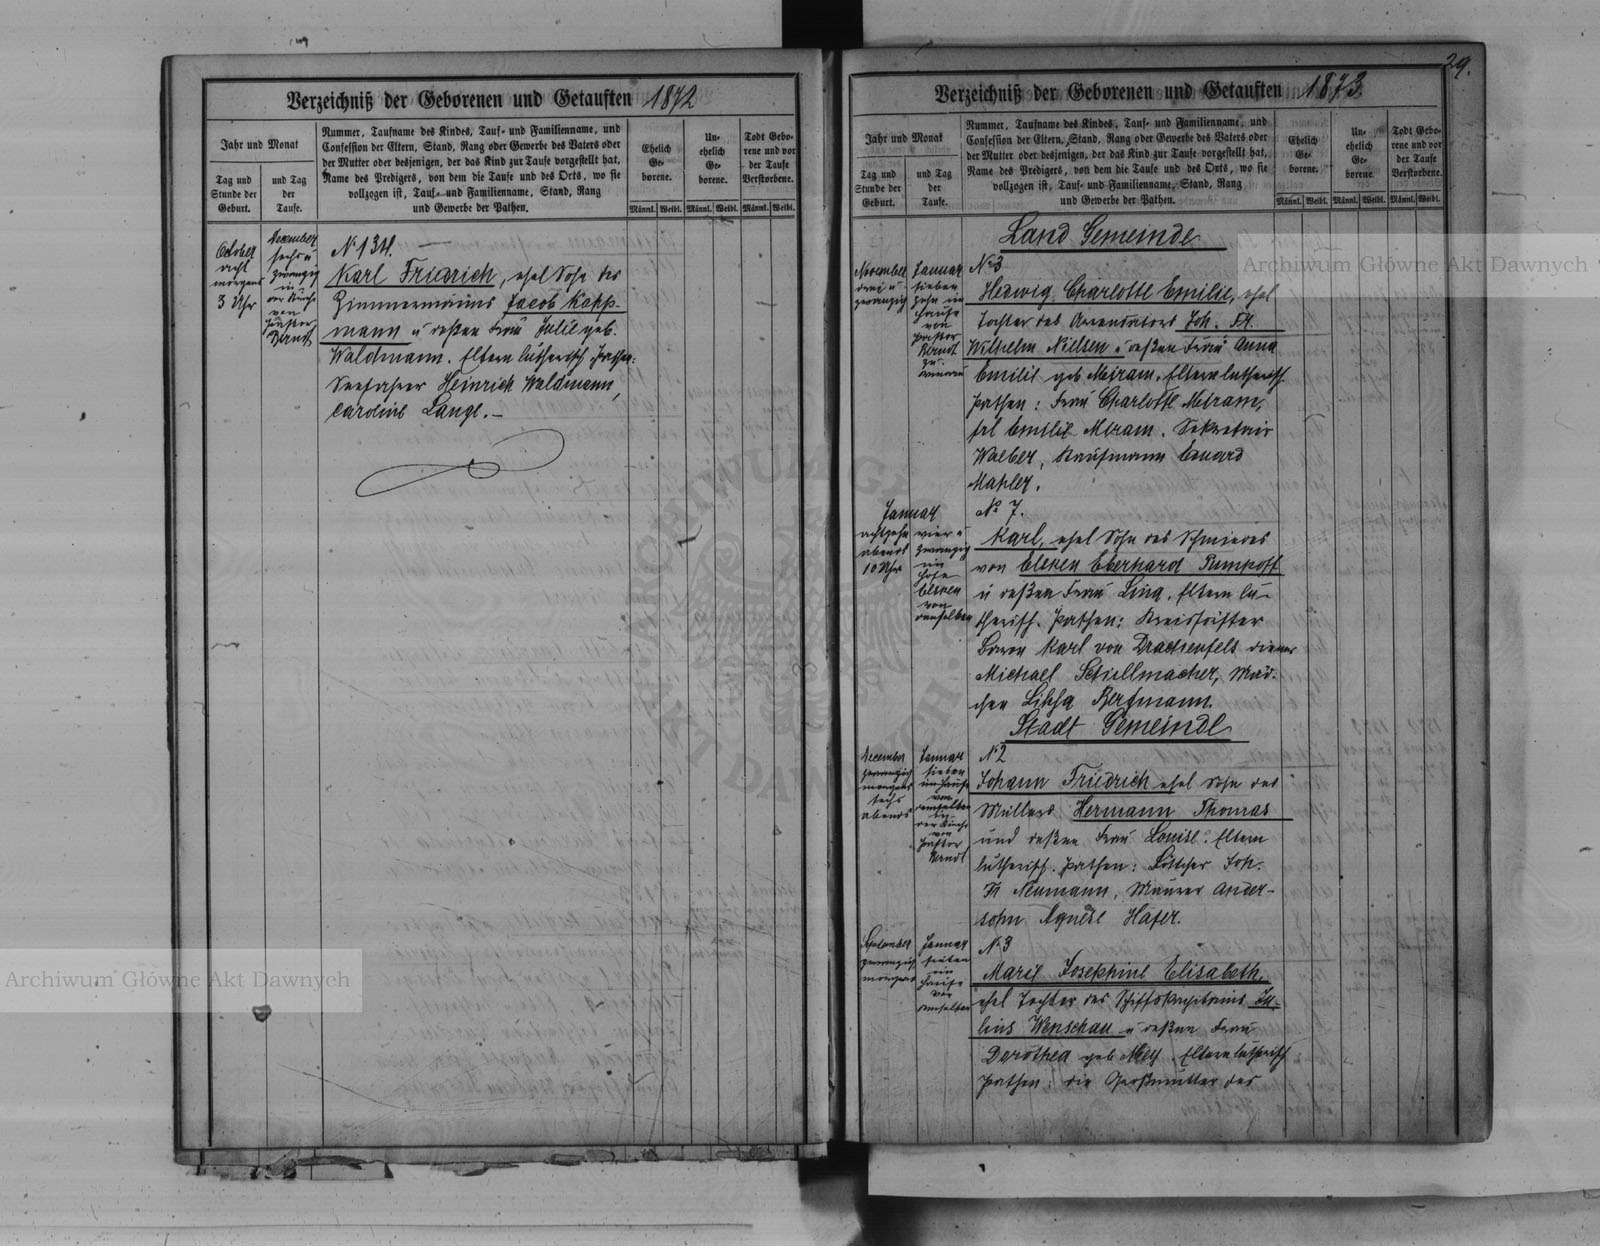 Verzeichniß der Geborenen und Getauften 1872
Jahr und Monat
Tag und Stunde der Geburt.
und Tag der Taufe.
Nummer, Taufname des Kindes, Tauf- und Familienname, und
Confession der Eltern, Stand, Rang oder Gewerbe des Vaters oder
der Mutter oder desjenigen, der das Kind zur Taufe vorgestellt hat,
Name des Predigers, von dem die Taufe und des Orts, wo sie
vollzogen ist, Tauf- und Familienname, Stand, Rang
und Gewerbe der Pathen.
Ehelich Ge- borene.
Un- ehelich Ge- borene.
Todt Gebo- rene und vor der Taufe Verstorbene.
Männl. Weibl. Männl. Weibl. Männl. Weibl.
October
acht
morgens
3 Uhr
December
sechs u
zwanzig
in
der Kirche
von
Pastor
Berndt
N 134.
Karl Friedrich, ehel Sohn des
Zimmermanns Jacob Kapp-
mann u deßen Frau Julie geb.
Waldmann. Eltern lutherisch Pathen:
Seefahrer Heinrich Waldmann,
Caroline Lange.
29.
Verzeichniß der Geborenen und Getauften 1873
Jahr und Monat
Tag und Stunde der Geburt.
und Tag der Taufe.
Nummer, Taufname des Kindes, Tauf- und Familienname, und
Confession der Eltern, Stand, Rang oder Gewerbe des Vaters oder
der Mutter oder desjenigen, der das Kind zur Taufe vorgestellt hat,
Name des Predigers, von dem die Taufe und des Orts, wo sie
vollzogen ist, Tauf- und Familienname, Stand, Rang
und Gewerbe der Pathen.
Ehelich Ge- borene.
Un- ehelich Ge- borene.
Todt Gebo- rene und vor der Taufe Verstorbene.
Männl. Weibl. Männl. Weibl. Männl. Weibl.
Land Gemeinde
November
drei u
zwanzig
Januar
sieben
zehn im
Hause
von
Pastor
Berndt
zu
N 3
Hedwig Charlotte Emilie, ehel
Tochter des Arrendators Joh. Fr.
Wilhelm Nielsen u deßen Frau Anna
Emilie geb Meiram. Eltern lutherisch
Pathen: Frau Charlotte Meiram,
frl Emilie Miram. Sekretair
Walber, Kaufmann Eduard
Mahler.
Januar
achtzehn
abends
10 Uhr
vier u
zwanzig
im
Hofe
Elkzen
von
demselben
No 7.
Karl, ehel Sohn des Schmiedes
von Eberhard Pumpoff
u deßen Frau Lina. Eltern lu-
therisch. Pathen: Kreisrichter
Baron Karl von Drachenfels diener
Michael Schillmacher, Mäd-
chen Bergmann.
Stadt Gemeinde
December
zwanzig
sechs
abends
Januar
sieben
im Hause
von
demselben
in
der Kirche
von
Pastor
Berndt
N 2
Johann Friedrich ehel Sohn des
Müllers Hermann Thomas
und deßen Frau Louise. Eltern
lutherisch. Pathen: Böttcher Joh.
Fr Neumann, Maurer Ander-
sohn Agnese Hafer.
September
zwanzig
morgens
Januar
sieben
im
Hause
von
demselben
N 3
Marie Josephine Elisabeth,
ehel Tochter des Schiffskapitains Ju-
lius Wenschau u deßen Frau
Dorothea geb Mey. Eltern lutherisch
Pathen: die Großmutter des
Archiwum Główne Akt Dawnych
Archiwum Główne Akt Dawnych
ARCHIWUM GŁÓWNE AKT DAWNYCH